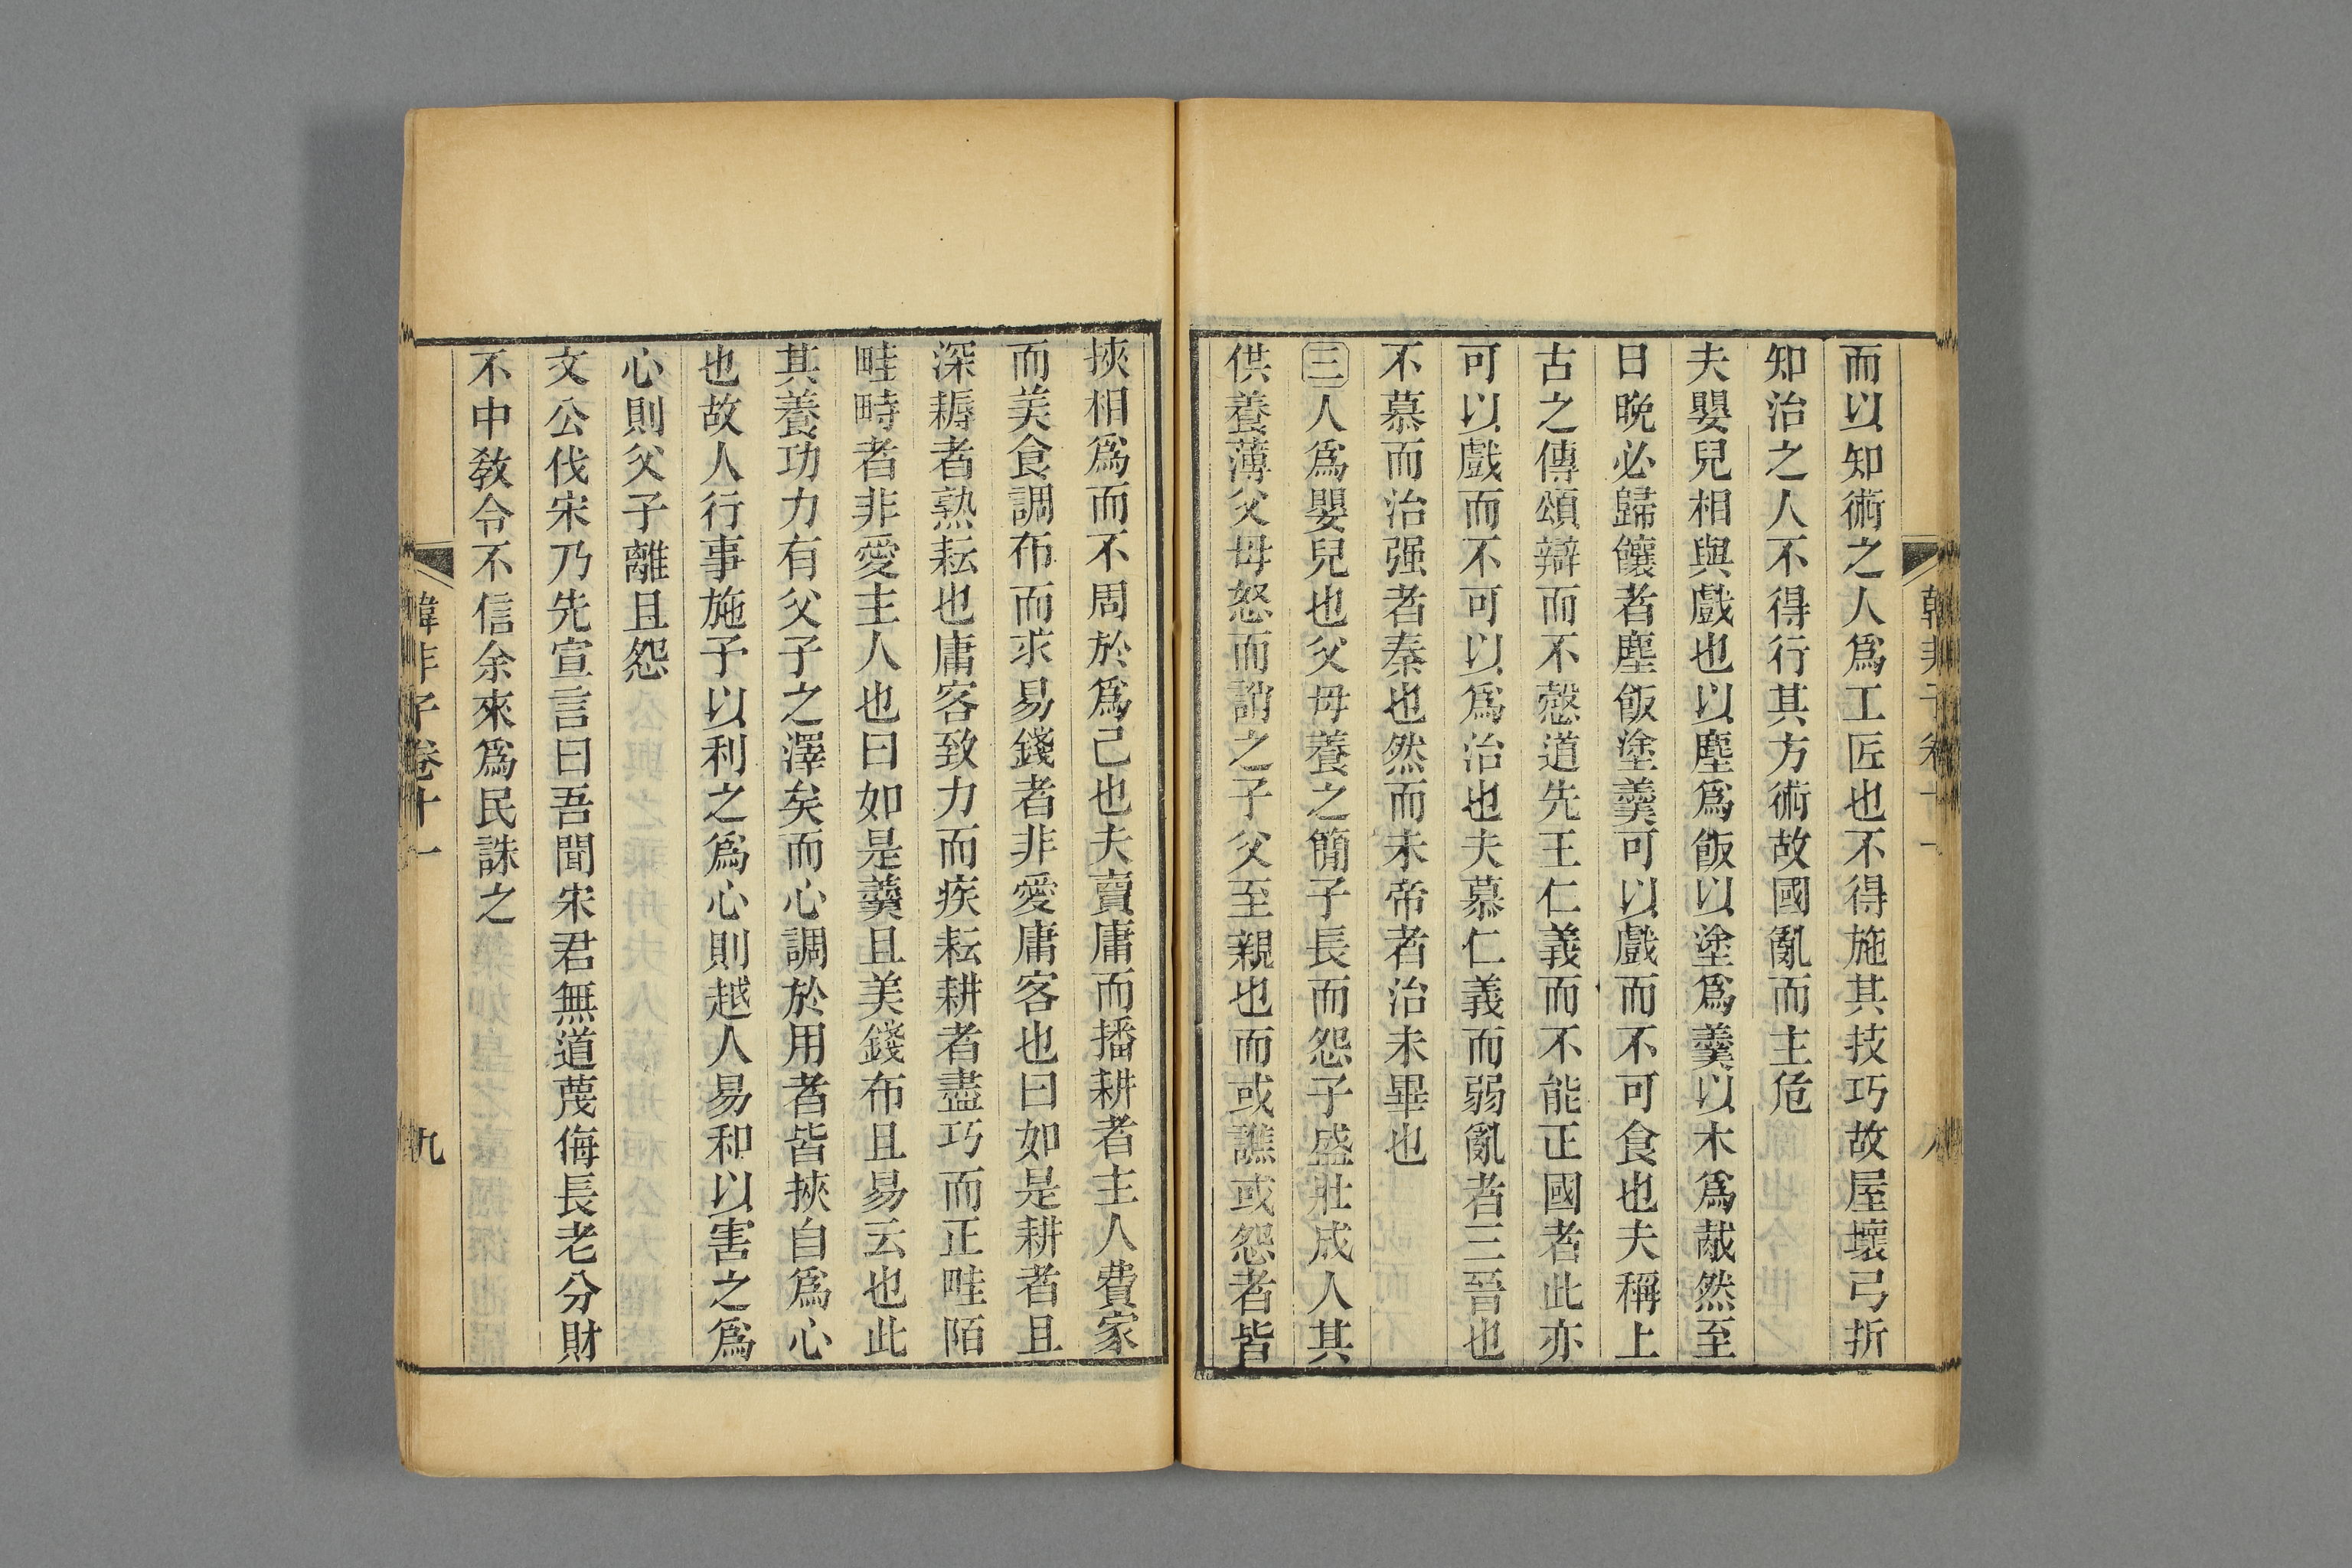 而以知術之人爲工匠也不得施其技巧故屋壞弓折
知治之人不得行其方術故國亂而主危
夫嬰兒相與戲也以塵爲飯以塗爲羹以木爲胾然至
日晚必歸饟者塵飯塗羹可以戲而不可食也夫稱上
古之傳頌辯而不愨道先王仁義而不能正國者此亦
可以戲而不可以爲治也夫慕仁義而弱亂者三晉也
不慕而治强者秦也然而未帝者治未畢也
三人爲嬰兒也父母養之簡子長而怨子盛壯成人其
供養薄父母怒而誚之子父至親也而或譙或怨者皆
挾相爲而不周於爲己也夫賣庸而播耕者主人費家
而美食調布而求易錢者非愛庸客也曰如是耕者且
深耨者熟耘也庸客致力而疾耘耕者盡巧而正畦陌
畦畤者非愛主人也曰如是羹且美錢布且易云也此
其養功力有父子之澤矣而心調於用者皆挾自爲心
也故人行事施予以利之爲心則越人易和以害之爲
心則父子離且怨
文公伐宋乃先宣言曰吾聞宋君無道蔑侮長老分財
不中敎令不信余來爲民誅之
韓非子卷十一
九